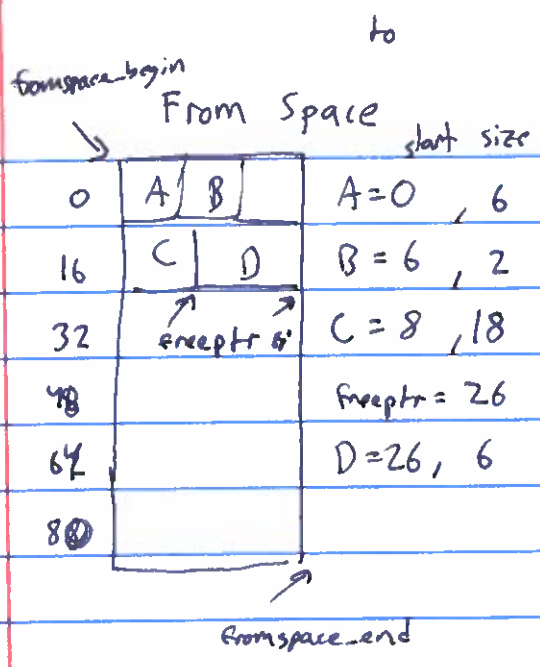 to
fromspace_begin
From Space
start size
0 A B A=0 , 6
16 C D B = 6 , 2
32 freeptr C = 8 , 18
48 freeptr = 26
64 D=26, 6
80
fromspace_end